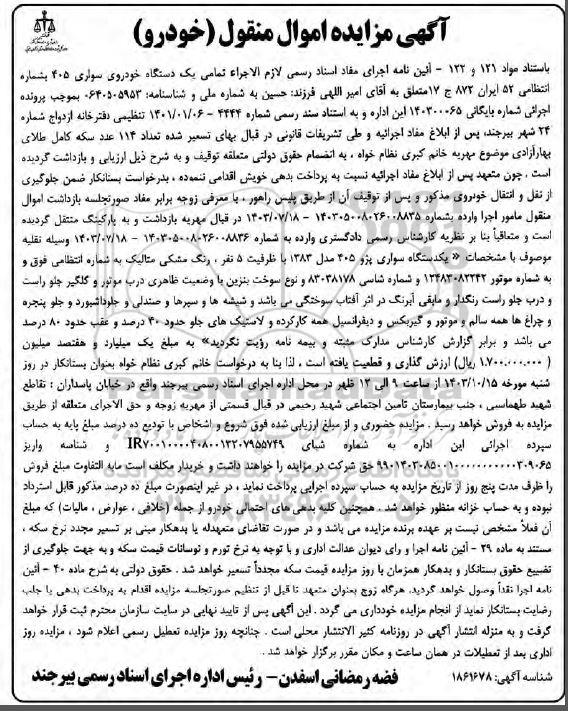 آگهی مزایده اموال منقول (خودرو)
باستناد مواد ۱۲۱ و ۱۲۲ - آئین نامه اجرای مفاد اسناد رسمی لازم الاجراء تمامی یک دستگاه خودروی سواری ۴۰۵ بشماره
انتظامی ۵۲ ایران ۸۷۲ ج ۱۷ متعلق به آقای امیر اللهی فرزند: حسین به شماره ملی و شناسنامه: ۰۶۴۰۵۰۵۹۵۳ بموجب پرونده
اجرائی شماره بایگانی ۱۴۰۳۰۰۰۶۵ این اداره و به استناد سند رسمی شماره ۴۴۴۴ - ۱۴۰۱/۰۱/۰۶ تنظیمی دفترخانه ازدواج شماره
۲۴ شهر بیرجند، پس از ابلاغ مفاد اجرائیه و طی تشریفات قانونی در قبال بهای تسعیر شده تعداد ۱۱۴ عدد سکه کامل طلای
بهارآزادی موضوع مهریه خانم کبری نظام خواه ، به انضمام حقوق دولتی متعلقه توقیف و به شرح ذیل ارزیابی و بازداشت گردیده
است . چون متعهد پس از ابلاغ مفاد اجرائیه نسبت به پرداخت بدهی خویش اقدامی ننموده ، بدرخواست بستانکار ضمن جلوگیری
از نقل و انتقال خودروی مذکور و پس از توقیف آن از طریق پلیس راهور ، با معرفی زوجه برابر مفاد صورتجلسه بازداشت اموال
منقول مامور اجرا وارده بشماره ۱۴۰۳۰۵۰۰۸۰۲۶۰۰۸۸۳۵ - ۱۴۰۳/۰۷/۱۸ در قبال مهریه بازداشت و به پارکینگ منتقل گردیده
است و متعاقباً بنا بر نظریه کارشناس رسمی دادگستری وارده به شماره ۱۴۰۳۰۵۰۰۸۰۲۶۰۰۸۸۳۶ - ۱۴۰۳/۰۷/۱۸ وسیله نقلیه
موصوف با مشخصات « یکدستگاه سواری پژو ۴۰۵ مدل ۱۳۸۳ با ظرفیت ۵ نفر ، رنگ مشکی متالیک به شماره انتظامی فوق و
به شماره موتور ۱۲۴۸۳۰۸۲۲۴۲ و شماره شاسی ۸۳۰۳۸۱۷۸ و نوع سوخت بنزین با وضعیت ظاهری درب موتور و گلگیر جلو راست
و درب جلو راست رنگدار و مابقی آبرنگ در اثر آفتاب سوختگی می باشد و شیشه ها و سپرها و صندلی و جلوداشبورد و جلو پنجره
و چراغ ها همه سالم و موتور و گیربکس و دیفرانسیل همه کارکرده و لاستیک های جلو حدود ۴۰ درصد و عقب حدود ۸۰ درصد
می باشد و برابر گزارش کارشناس مدارک مثبته و بیمه نامه رؤیت نگردید» به مبلغ یک میلیارد و هفتصد میلیون
( ۱.۷۰۰.۰۰۰.۰۰۰ ریال) ارزش گذاری و قطعیت یافته است ، لذا بنا به درخواست خانم کبری نظام خواه بعنوان بستانکار در روز
شنبه مورخه ۱۴۰۳/۱۰/۱۵ از ساعت ۹ الی ۱۲ ظهر در محل اداره اجرای اسناد رسمی بیرجند واقع در خیابان پاسداران : تقاطع
شهید طهماسبی ، جنب بیمارستان تامین اجتماعی شهید رحیمی در قبال قسمتی از مهریه زوجه و حق الاجرای متعلقه از طریق
مزایده به فروش خواهد رسید . مزایده حضوری و از مبلغ ارزیابی شده فوق شروع و اشخاص با تودیع ده درصد مبلغ پایه به حساب
سپرده اجرائی این اداره به شماره شبای IR۷۰۰۱۰۰۰۰۴۰۸۰۰۱۳۲۰۷۹۵۵۷۴۹ و شناسه واریز
۹۹۰۱۴۰۳۰۸۵۰۰۱۰۰۰۰۰۰۰۰۰۰۰۰۳۰۹۰۶۵ حق شرکت در مزایده را خواهند داشت و خریدار مکلف است مابه التفاوت مبلغ فروش
را ظرف مدت پنج روز از تاریخ مزایده به حساب سپرده اجرایی پرداخت نماید ، در غیر اینصورت مبلغ ده درصد مذکور قابل استرداد
نبوده و به حساب خزانه منظور خواهد شد . همچنین کلیه بدهی های احتمالی خودرو از جمله (خلافی ، عوارض ، مالیات) که مبلغ
آن فعلاً مشخص نیست بر عهده برنده مزایده می باشد و در صورت تقاضای متعهدله یا بدهکار مبنی بر تسعیر مجدد نرخ سکه ،
مستند به ماده ۲۹ - آئین نامه اجرا و رای دیوان عدالت اداری و با توجه به نرخ تورم و نوسانات قیمت سکه و به جهت جلوگیری از
تضییع حقوق بستانکار و بدهکار همزمان با روز مزایده قیمت سکه مجدداً تسعیر خواهد شد . حقوق دولتی به شرح ماده ۴۰ - آئین
نامه اجرا نقداً وصول خواهد گردید. هرگاه زوج بعنوان متعهد تا قبل از تنظیم صورتجلسه مزایده اقدام به پرداخت بدهی یا جلب
رضایت بستانکار نماید از انجام مزایده خودداری می گردد . این آگهی پس از تایید نهایی در سایت سازمان محترم ثبت قرار خواهد
گرفت و به منزله انتشار آگهی در روزنامه کثیر الانتشار محلی است . چنانچه روز مزایده تعطیل رسمی اعلام شود ، مزایده روز
اداری بعد از تعطیلات در همان ساعت و مکان مقرر برگزار خواهد شد .
شناسه آگهی: ۱۸۶۱۶۷۸
فضه رمضانی اسفدن - رئیس اداره اجرای اسناد رسمی بیرجند